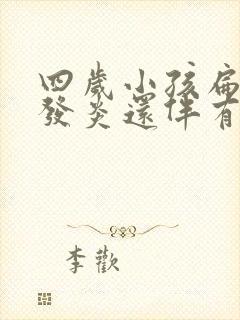 四歲小孩扁
發炎還伴有
李歡